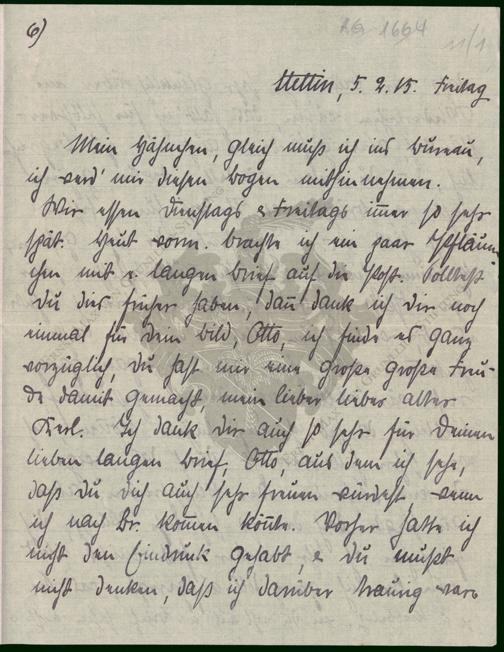 6)
AG 1664
11/1
Stettin, 5. 2. 15. Freitag
Mein Hähnchen, gleich muß ich ins Bureau,
ich werd' mir diesen Bogen mithinnehmen.
Wir essen Dienstags & Freitags immer so sehr
spät. Heut vorm. brachte ich ein paar Pfläum-
chen mit e. langen Brief auf die Post. Solltest
Du dies früher haben, dann dank ich Dir noch
einmal für dem Bild, Otto, ich finde es ganz
vorzüglich, Du hast mir eine große große Freu-
de damit gemacht, mein lieber lieber alter
Kerl. Ich dank Dir auch so sehr für Deinen
lieben langen Brief, Otto, aus dem ich sehe,
daß Du Dich auch sehr freuen würdest wenn
ich nach Br. kommen könnte. Vorher hatte ich
nicht den Eindruck gehabt, & Du mußt
nicht denken, daß ich darüber traurig war.